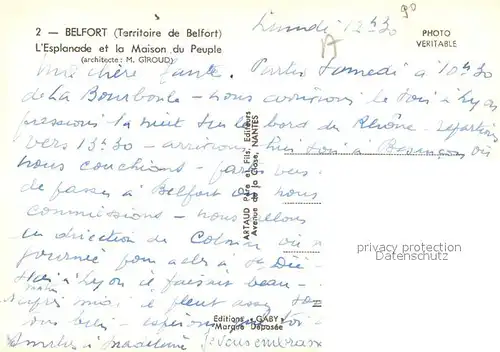 2 — BELFORT (Territoire de Belfort)
L'Esplanade et la Maison du Peuple
(architecte : M. GIROUD)
PHOTO
VERITABLE
Lundi 12h30
90
Ma chère Tante. Partis Samedi à 10h30
de La Bourboule - nous arrivions le soir à Lyon
passions la nuit sur le bord du Rhône. repartions
vers 13h30 - arrivions hier soir à Besançon où
nous couchions -
de passer à Belfort où nous
commissions - nous allons
en direction de Colmar où
journée pour aller à St Dié
Hier à Lyon il faisait beau -
il pleut assez
bien - espérons
à Madeleine Je vous embrasse
ARTAUD Père et Fils, Editeurs
Avenue de la Close, NANTES
Editions "GABY"
Marque Déposée
privacy protection
copyright